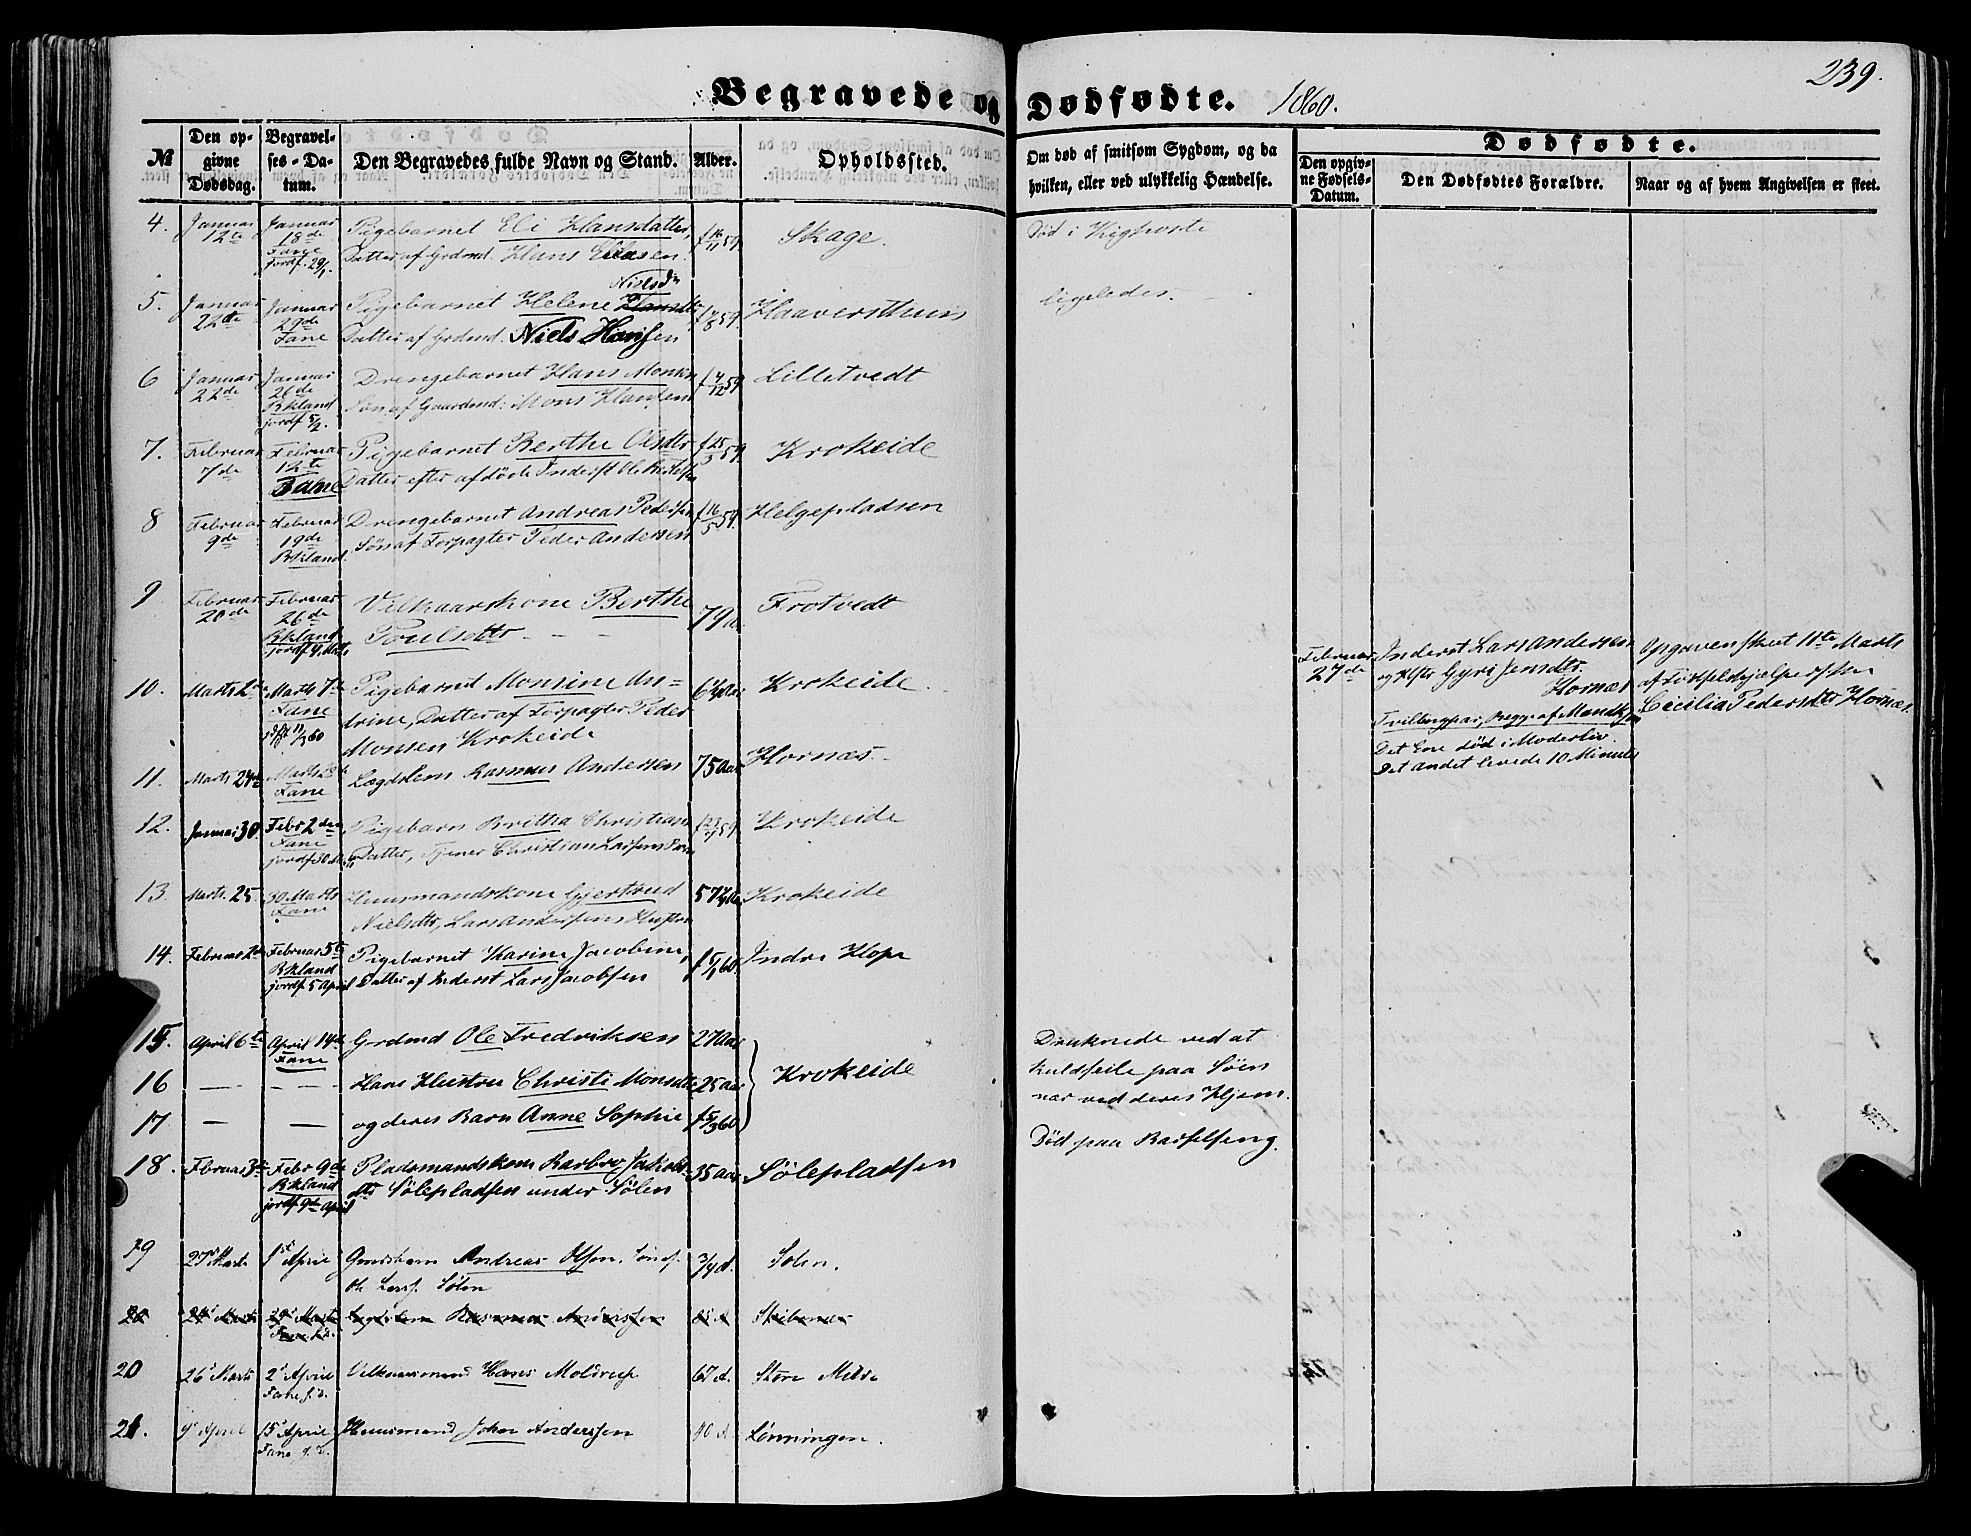 Begravede og Dødfødte. 1860.
239.
№
Den opgivne Dødsdag.
Begravelses-Datum.
Den Begravedes fulde Navn og Stand.
Alder.
Opholdssted.
Om død af smitsom Sygdom, og da hvilken, eller ved ulykkelig Hændelse.
Dødfødte.
Den opgivne Fødsels-Datum.
Den Dødfødtes Forældre.
Naar og af hvem Angivelsen er skeet.
4. Januar 12te Januar 18de Fane jordf. 29/1. Pigebarnet Eli Hansdatter, f 16/11 59 Skage. Død i Kighoste
Datter af Grdmd. Hans Eliasen.
5. Januar 22de Januar 29de Fane Pigebarnet Helene Nielsdtr f 7/8 59 Haaversthuus ligeledes.
Datter af Grdmd. Niels Hansen
6 Januar 22de Januar 26de Bkland jordf 5/2. Drengebarnet Hans Monsen f 4/12 59 Lilletvedt
Søn af Gaardmd: Mons Hansen
7. Februar 7de Februar 12te Fane Pigebarnet Berthe Olsdtr f 25/3 59 Krokeide
Datter efter afdøde Inderst Ole
8 Februar 9de Februar 19de Bkland. Drengebarnet Andreas Pedersen f 16/5 59. Helgepladsen
Søn af Forpagter Peder Andersen
9 Februar 20de Februar 26de Bkland jordf 4 Marts Velkaarskone Berthe 79 Frotvedt
Poulsdtr
10. Marts 2den Marts 7de Fane 11/3 60 Pigebarnet Monsine An= Krokeide
drine, Datter af Forpagter Peder
Monsen Krokeide
Februar 27de Inderst Lars Andersen
og Hstr Gyri Jensdtr
Hornæs
Tvillingpar, Begge af Mandkjøn
Det Ene død i Moderliv.
Det andet levede 10 Minuter
Opgaven skeet 11te Marts
af Fødselshjælpersken
Cicilia Pedersdtr Hornæs.
11. Marts 24de Marts Fane Lægdslem Rasmus Andersen 75 Aar Hornæs.
12. Januar 30. Febr 2den Fane Pigebarn Britha Christians 59 Krokeide
Datter, Tjener Christian Larsens
13. Marts 25. 30 Marts Fane Huusmandskone Gjertrud Krokeide
Nielsdtr, Lars Andersens Hustru
14. Februar Februar 5te Bkland jordf. 5 April Pigebarnet Karine Jacobine, f 5/1 60. Indre Hope
Datter af Inderst Lars Jacobsen
15. April 6te April 14de Fane Grdmd Ole Fredriksen 27 Aar Krokeide Druknede ved at
16 — — Hans Hustru Christi Monsdtr 25 aar kuldseile paa Søen
17. — — og deres Barn Anne Sophie f 5/3 60 nær ved deres Hjem.
18. Februar 3de Febr 9de Bkland jordf. 9de April Pladsmandskone Barbro Jakobs= 35 aar Sølepladsen Død paa Barselseng.
dtr Sølepladsen under Sølen
19 27' Marts 1st April Andreas Olsen. Søn af 3/4 A. Sølen.
Ole Larss. Sølen
20 24' Marts 29' Marts Fane Lægdslem Rasmus Andersen Skibenæs
20 26' Marts 2' April Fane Velkaarsmand Hans Moldrup 67 A. Store Milde
21. 9' April 15' April Fane Huusmand John Anderssen 40 A Lønningen.